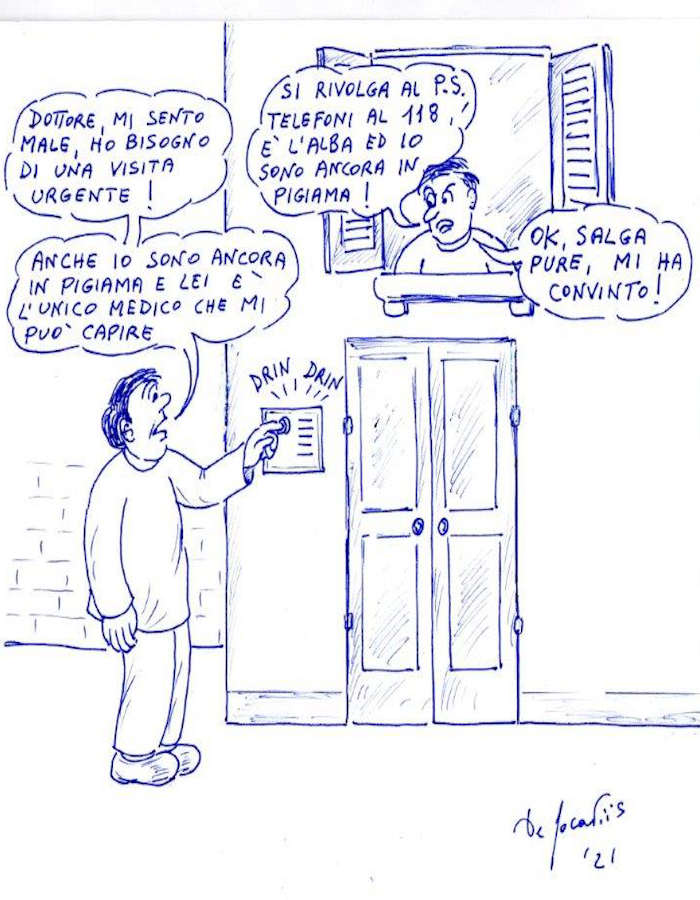 DOTTORE, MI SENTO
MALE, HO BISOGNO
DI UNA VISITA
URGENTE !
SI RIVOLGA AL P.S.
TELEFONI AL 118,!
E' L'ALBA ED IO
SONO ANCORA IN
PIGIAMA !
ANCHE IO SONO ANCORA
IN PIGIAMA E LEI E'
L'UNICO MEDICO CHE MI
PUO' CAPIRE
OK, SALGA
PURE, MI HA
CONVINTO!
DRIN DRIN
De
'21